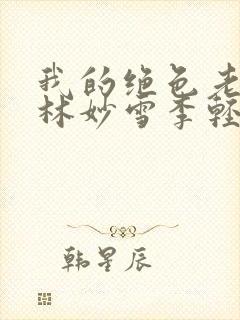 我的绝色老
林妙雪季轻
韩星辰